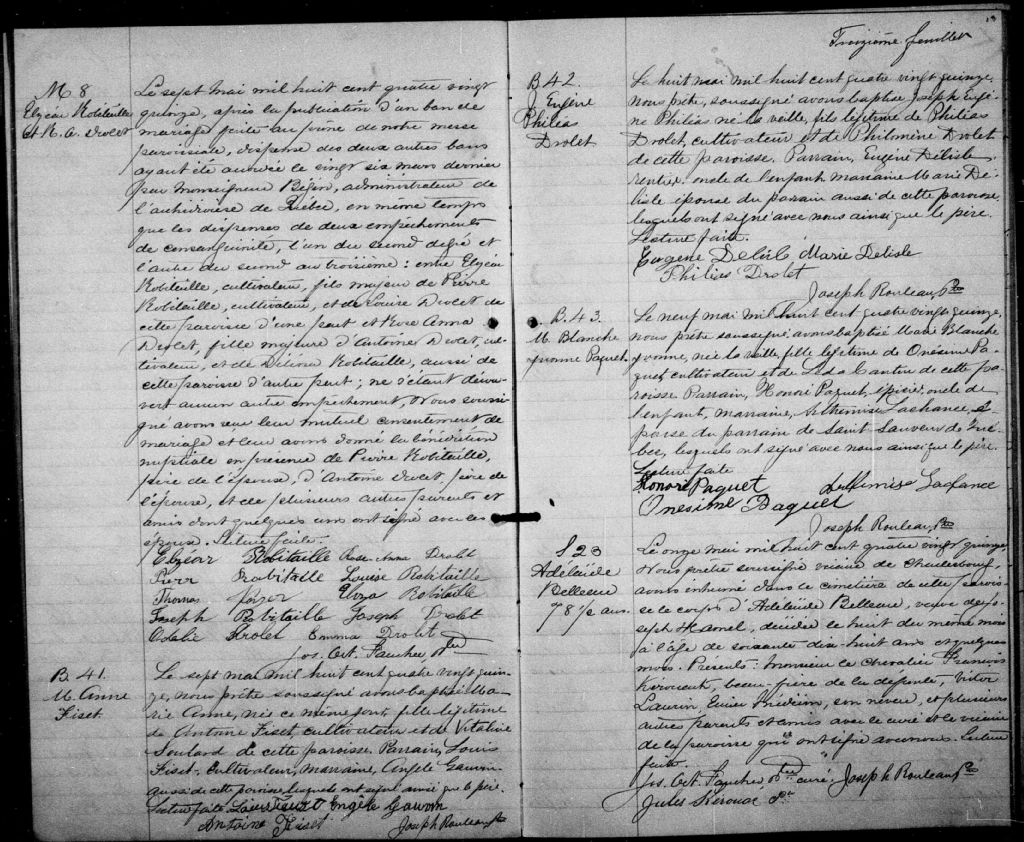 M 8
Elzéar Robitaille
et R. A. Drolet
Le sept mai mil huit cent quatre vingt
quinze, après la publication d'un ban de
mariage faite au prône de notre messe
paroissiale, dispense des deux autres bans
ayant été accordée le vingt six mars dernier
par Monseigneur Bégin, administrateur de
l'archidiocèse de Québec, en même temps
que les dispenses de deux empêchements
de consanguinité, l'un du second degré et
l'autre du second au troisième: entre Elzéar
Robitaille, cultivateur, fils majeur de Pierre
Robitaille, cultivateur, et de Louise Drolet de
cette paroisse d'une part et Rose Anna
Drolet, fille majeure d'Antoine Drolet, cul-
tivateur, et de Robitaille, aussi de
cette paroisse d'autre part; ne s'étant décou-
vert aucun autre empêchement, Nous soussi-
gné avons reçu leur mutuel consentement de
mariage et leur avons donné la bénédiction
nuptiale en présence de Pierre Robitaille,
père de l'époux, d'Antoine Drolet, père de
l'épouse, et de plusieurs autres parents et
amis dont quelques uns ont signé avec les
époux. Lecture faite.
Elzéar Robitaille Rose-Anna Drolet
Pierr Robitaille Louise Robitaille
Thomas Eliza Robitaille
Joseph Robitaille Joseph Drolet
Odelie Drolet Emma Drolet
Jos. Oct. Faucher Ptre
B. 41.
M. Anne
Fiset.
Le sept mai mil huit cent quatre vingt quin-
ze, nous prêtre soussigné avons baptisé Ma-
rie Anne, née ce même jour, fille légitime
de Antoine Fiset, cultivateur et de Vitaline
Soulard de cette paroisse. Parrain, Louis
Fiset, cultivateur, marraine, Angèle Gauvin
aussi de cette paroisse lesquels ont signé ainsi que le père.
Lecture faite. Louis Fiset Engèle Gauvin
Antoine Fiset Joseph Rouleau, Ptre
13
Troisième feuillet
B 42.
J. Eugène
Philéas
Drolet
Le huit mai mil huit cent quatre vingt quinze,
nous prêtre, soussigné avons baptisé Joseph Eugè-
ne Philéas né la veille, fils légitime de Philéas
Drolet, cultivateur et de Philomène Drolet
de cette paroisse. Parrain, Eugène Délisle
rentier oncle de l'enfant marraine Marie Dé-
lisle épouse du parrain aussi de cette paroisse
lesquels ont signé avec nous ainsi que le père.
Lecture faite.
Eugene Delisle Marie Delisle
Philias Drolet
Joseph Rouleau, Ptre
B. 43.
M. Blanche
Yvonne Paquet.
Le neuf mai mil huit cent quatre vingt quinze,
nous prêtre soussigné avons baptisé Marie Blanche
Yvonne, née la veille, fille légitime de Onésime Pa-
quet cultivateur et de Léda Cantin de cette pa-
roisse. Parrain, Honoré Paquet, épicier, oncle de
l'enfant, marraine, Arthémise Lachance, é-
pouse du parrain de Saint Sauveur de Qué-
bec, lesquels ont signé avec nous ainsi que le père.
Lecture faite
Honoré Paquet Lachance
Onesime Paquet
Joseph Rouleau, Ptre
S 23
Adélaïde
Belleau
78 1/2 ans.
Le onze mai mil huit cent quatre vingt quinze,
Nous prêtre soussigné vicaire de Charlesbourg,
avons inhumé dans le cimetière de cette parois-
se le corps d'Adélaïde Belleau, veuve de Jo-
seph Hamel, décédée le huit du même mois
à l'âge de soixante dix-huit ans et quelques
mois. Présents: Monsieur le Chevalier François
Kirouack, beau-frère de la défunte, Victor
Lauvin, son neveu, et plusieurs
autres parents et amis avec le curé et le vicaire
de la paroisse qui ont signé avec nous. Lecture
faite.
Jos. Oct. Faucher Ptre curé Joseph Rouleau, Ptre
Jules Kirouac Ptre